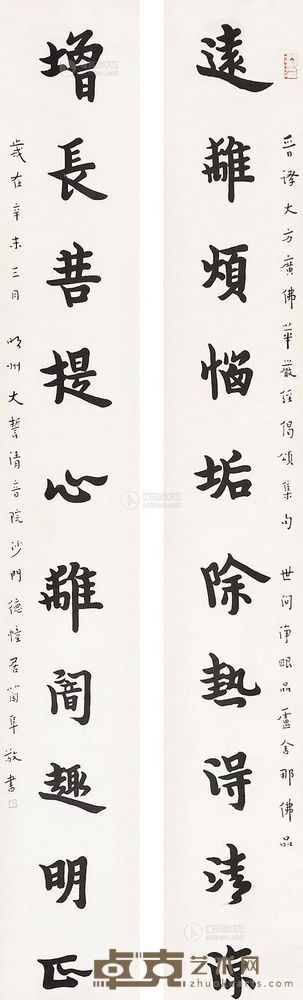 晉譯大方廣佛華嚴經偈頌集句 世間淨眼品盧舍那佛品
遠離煩惱垢除熱得清涼
增長菩提心離闇趣明正
歲在辛未三月 明州大誓清音院沙門德幢居敬書
卓克艺术网